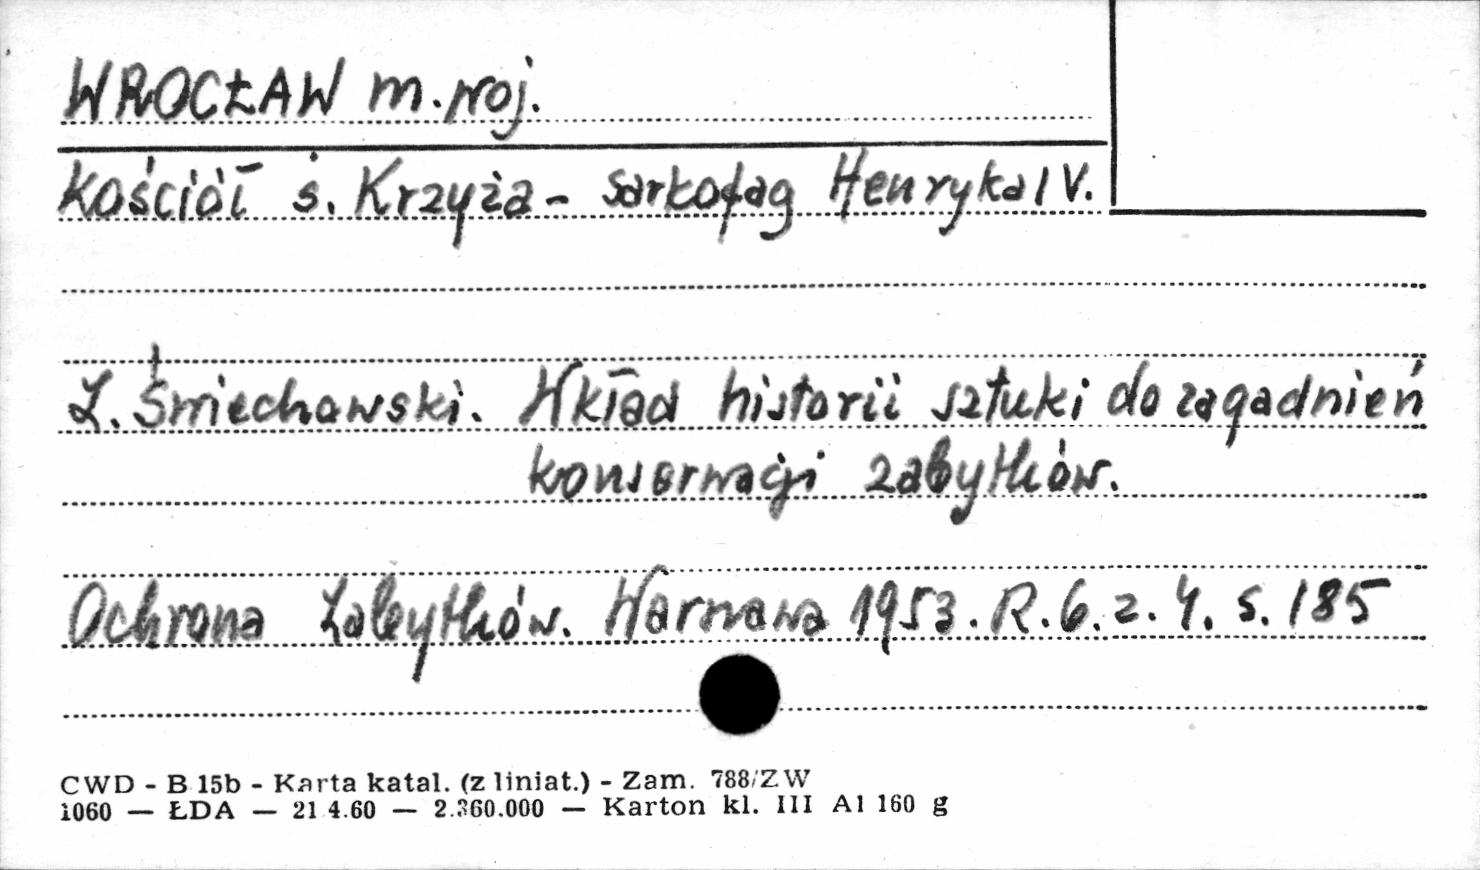 WROCŁAW m. woj.
Kościół ś. Krzyża - sarkofag Henryka IV.
L. Śmiechowski. Wkład historii sztuki do zagadnień
konserwacji zabytków.
Ochrona Zabytków. Warszawa 1953. R. 6. z. 4. s. 185
CWD - B 15b - Karta katal. (z liniat.) - Zam. 788/ZW
1060 — ŁDA — 21.4.60 — 2.360.000 — Karton kl. III A1 160 g